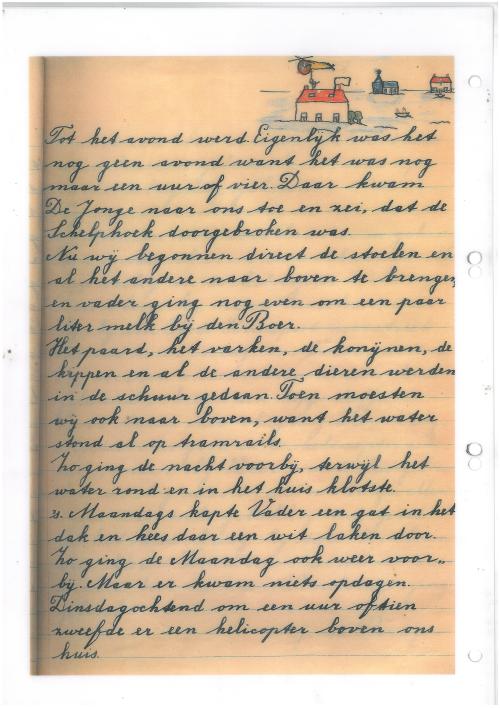 Tot het avond werd. Eigenlijk was het
nog geen avond want het was nog
maar een uur of vier. Daar kwam
De Jonge naar ons toe en zei, dat de
Schelphoek doorgebroken was.
Nu wij begonnen direct de stoelen en
al het andere naar boven te brengen,
en vader ging nog even om een paar
liter melk bij den Boer.
Het paard, het varken, de konijnen, de
kippen en al de andere dieren werden
in de schuur gedaan. Toen moesten
wij ook naar boven, want het water
stond al op tramrails.
Zo ging de nacht voorbij, terwijl het
water rond en in het huis klotste.
's Maandags kapte Vader een gat in het
dak en hees daar een wit laken door.
Zo ging de Maandag ook weer voor„
bij. Maar er kwam niets opdagen.
Dinsdagochtend om een uur of tien
zweefde er een helicopter boven ons
huis.